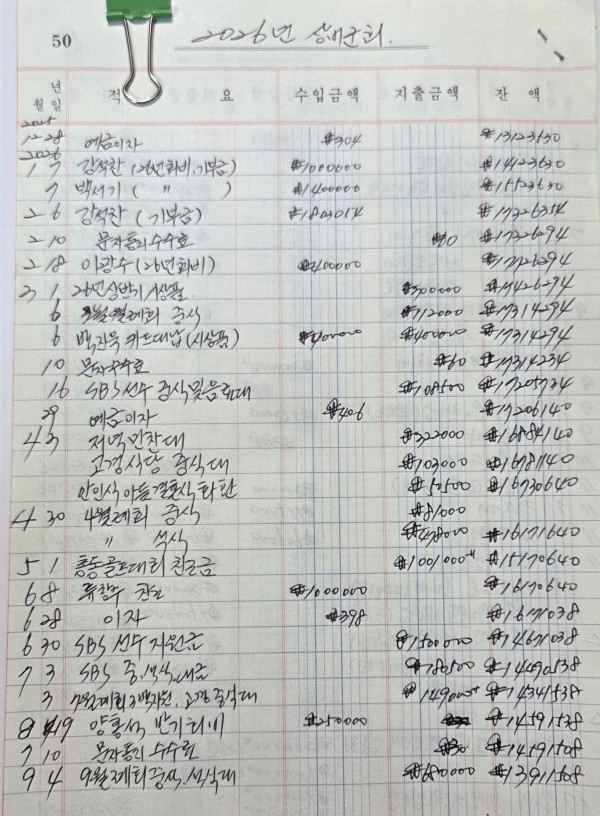 50
2026년 상배군회.
년
월 일 적 요 수입금액 지출금액 잔 액
2025
12 28 예금이자 #304 #13123630
2026
1 7 강석찬 (26년회비, 기부금) #1000000 #14123630
7 백서기 ( " ) #1400000 #15523630
2 6 강석찬 (기부금) #1803054 #17326354
2 10 문자통리수수료 #60 #17326294
2 18 이광수 (26년회비) #400000 #17726294
3 1 26년상반기시상품 #300000 #17426294
6 3월월례회 중식 #112000 #17314294
6 백진욱 카드대납 (시상품) #400000 #400000 #17314294
10 문자수수료 #60 #17314234
16 SBS선수 중식및음료대 #108500 #17205734
29 예금이자 #406 #17206140
4 3 저녁만찬대 #322000 #16884140
고경식당 중식대 #103000 #16781140
안인식 아들결혼식화환 #50500 #16730640
4 30 4월례회 중식 #81000
" 석식 #478000 #16171640
5 1 총동골프대회 찬조금 #1001000 #15170640
6 8 류창수 찬조 #1000000 #16170640
6 28 이자 #398 #16171038
6 30 SBS 선수지원금 #1500000 #14671038
7 3 SBS 중.석식.대금 #780500 #14490538
3 7월례회 고경 중식대 #149000 #14341538
19 양홍석 반기회비 #250000 #14591538
7 10 문자통리 수수료 #30 #14591508
9 4 9월례회중식.석식대 #680000 #13911508